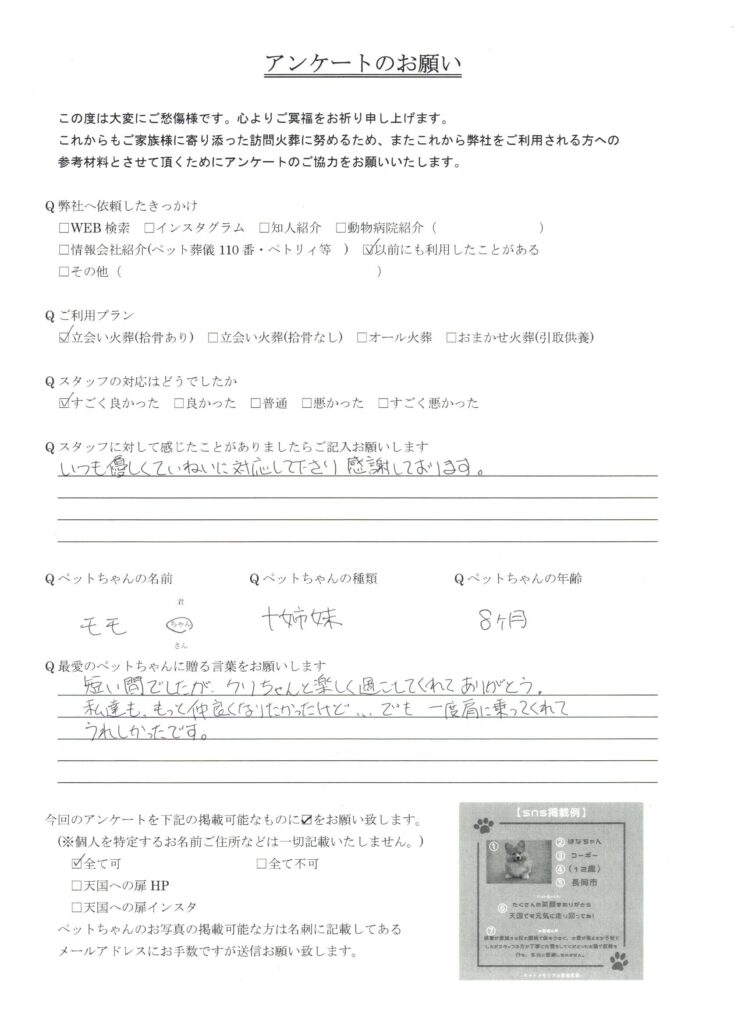 アンケートのお願い
この度は大変にご愁傷様です。心よりご冥福をお祈り申し上げます。
これからもご家族様に寄り添った訪問火葬に努めるため、またこれから弊社をご利用される方への
参考材料とさせて頂くためにアンケートのご協力をお願いいたします。
Q 弊社へ依頼したきっかけ
□WEB 検索 □インスタグラム □知人紹介 □動物病院紹介（ ）
□情報会社紹介(ペット葬儀 110 番・ペトリィ等 ) ☑以前にも利用したことがある
□その他（ ）
Q ご利用プラン
☑立会い火葬(拾骨あり) □立会い火葬(拾骨なし) □オール火葬 □おまかせ火葬(引取供養)
Q スタッフの対応はどうでしたか
☑すごく良かった □良かった □普通 □悪かった □すごく悪かった
Q スタッフに対して感じたことがありましたらご記入お願いします
いつも優しくていねいに対応して下さり 感謝しております。
Q ペットちゃんの名前 Q ペットちゃんの種類 Q ペットちゃんの年齢
君
モモ ちゃん 十姉妹 8ヶ月
さん
Q 最愛のペットちゃんに贈る言葉をお願いします
短い間でしたが、クリちゃんと楽しく過ごしてくれて ありがとう。
私達も、もっと仲良くなりたかったけど... でも 一度肩に乗ってくれて
うれしかったです。
今回のアンケートを下記の掲載可能なものに☑をお願い致します。
(※個人を特定するお名前ご住所などは一切記載いたしません。)
☑全て可 □全て不可
□天国への扉 HP
□天国への扉インスタ
ペットちゃんのお写真の掲載可能な方は名刺に記載してある
メールアドレスにお手数ですが送信お願い致します。
【sns掲載例】
① ② はなちゃん
③ コーギー
④ (12歳)
⑤ 長岡市
⑥ たくさんの笑顔をありがとう
天国でも元気に走り回ってね!
⑦